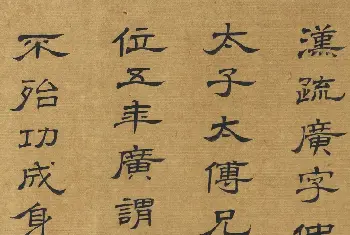 漢疏廣字仲
太子太傅兄
位五年廣謂
不殆功成身